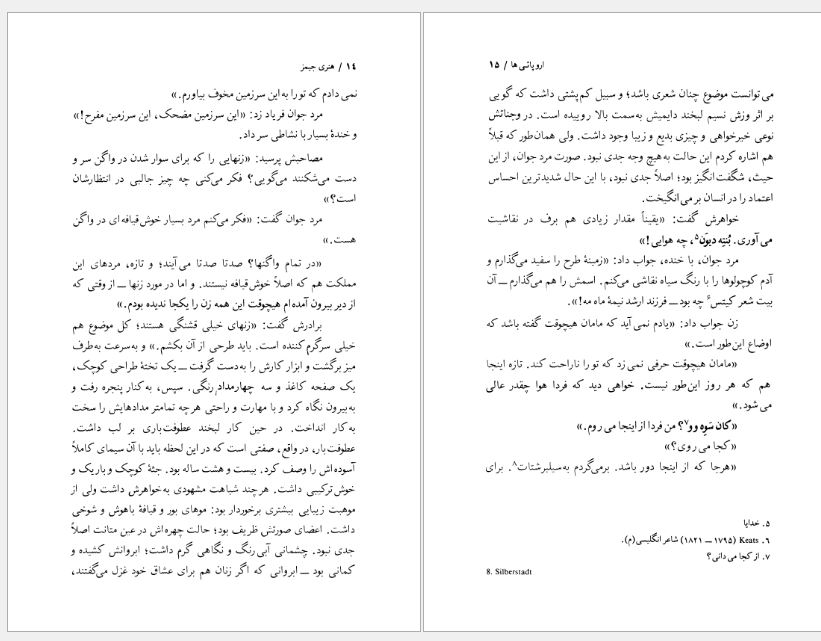 ۱٤ / هنری جیمز
نمی دادم که تو را به این سرزمین مخوف بیاورم.»
مرد جوان فریاد زد: «این سرزمین مضحک، این سرزمین مفرح!»
و خندهٔ بسیار با نشاطی سر داد.
مصاحبش پرسید: «زنهایی را که برای سوار شدن در واگن سر و
دست می‌شکنند می‌گویی؟ فکر می‌کنی چه چیز جالبی در انتظارشان
است؟»
مرد جوان گفت: «فکر می‌کنم مرد بسیار خوش‌قیافه‌ای در واگن
هست.»
«در تمام واگنها؟ صدتا صدتا می‌آیند؛ و تازه، مردهای این
مملکت هم که اصلاً خوش‌قیافه نیستند. و اما در مورد زنها ــ از وقتی که
از دیر بیرون آمده‌ام هیچوقت این همه زن را یکجا ندیده بودم.»
برادرش گفت: «زنهای خیلی قشنگی هستند؛ کل موضوع هم
خیلی سرگرم‌کننده است. باید طرحی از آن بکشم.» و به‌سرعت به‌طرف
میز برگشت و ابزار کارش را به‌دست گرفت ــ یک تختهٔ طراحی کوچک،
یک صفحه کاغذ و سه چهارمداد رنگی. سپس، به‌کنار پنجره رفت و
به‌بیرون نگاه کرد و با مهارت و راحتی هرچه تمامتر مدادهایش را سخت
به‌کار انداخت. در حین کار لبخند عطوفت‌باری بر لب داشت.
عطوفت‌بار، در واقع، صفتی است که در این لحظه باید با آن سیمای کاملاً
آسوده‌اش را وصف کرد. بیست و هشت ساله بود. جثهٔ کوچک و باریک و
خوش‌ترکیبی داشت. هرچند شباهت مشهودی به‌خواهرش داشت ولی از
موهبت زیبایی بیشتری برخوردار بود: موهای بور و قیافهٔ باهوش و شوخی
داشت. اعضای صورتش ظریف بود؛ حالت چهره‌اش در عین متانت اصلاً
جدی نبود. چشمانی آبی‌رنگ و نگاهی گرم داشت؛ ابروانش کشیده و
کمانی بود ــ ابروانی که اگر زنان هم برای عشاق خود غزل می‌گفتند،
اروپائی‌ها / ۱۵
می‌توانست موضوع چنان شعری باشد؛ و سبیل کم‌پشتی داشت که گویی
بر اثر وزش نسیم لبخند دایمیش به‌سمت بالا روییده است. در وجناتش
نوعی خیرخواهی و چیزی بدیع و زیبا وجود داشت. ولی همان‌طور که قبلاً
هم اشاره کردم این حالت به‌هیچ وجه جدی نبود. صورت مرد جوان، از این
حیث، شگفت‌انگیز بود؛ اصلاً جدی نبود، با این حال شدیدترین احساس
اعتماد را در انسان برمی‌انگیخت.
خواهرش گفت: «یقیناً مقدار زیادی هم برف در نقاشیت
می‌آوری. بُنته دیوَن۵، چه هوایی!»
مرد جوان، با خنده، جواب داد: «زمینهٔ طرح را سفید می‌گذارم و
آدم کوچولوها را با رنگ سیاه نقاشی می‌کنم. اسمش را هم می‌گذارم ــ آن
بیت شعر کیتس۶ چه بود ــ فرزند ارشد نیمهٔ ماه مه!».
زن جواب داد: «یادم نمی‌آید که مامان هیچوقت گفته باشد که
اوضاع این‌طور است.»
«مامان هیچوقت حرفی نمی‌زد که تو را ناراحت کند. تازه اینجا
هم که هر روز این‌طور نیست. خواهی دید که فردا هوا چقدر عالی
می‌شود.»
«کان سَوِه وو۷؟ من فردا از اینجا می‌روم.»
«کجا می‌روی؟»
«هرجا که از اینجا دور باشد. برمی‌گردم به‌سیلبرشتات۸. برای
۵. خدایا
۶. Keats (۱۷۹۵ ــ ۱۸۲۱) شاعر انگلیسی(م).
۷. از کجا می‌دانی؟
8. Silberstadt